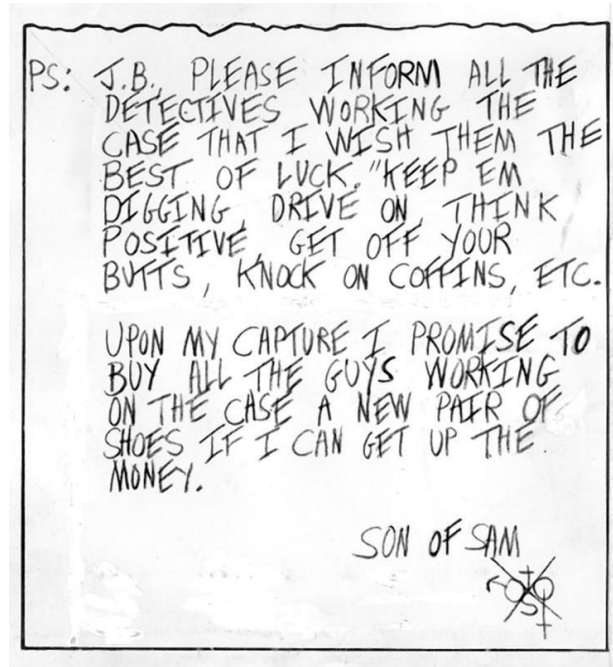 PS: J.B. PLEASE INFORM ALL THE
DETECTIVES WORKING THE
CASE THAT I WISH THEM THE
BEST OF LUCK. "KEEP EM
DIGGING, DRIVE ON, THINK
POSITIVE, GET OFF YOUR
BUTTS, KNOCK ON COFFINS, ETC.
UPON MY CAPTURE I PROMISE TO
BUY ALL THE GUYS WORKING
ON THE CASE A NEW PAIR OF
SHOES IF I CAN GET UP THE
MONEY.
SON OF SAM
S